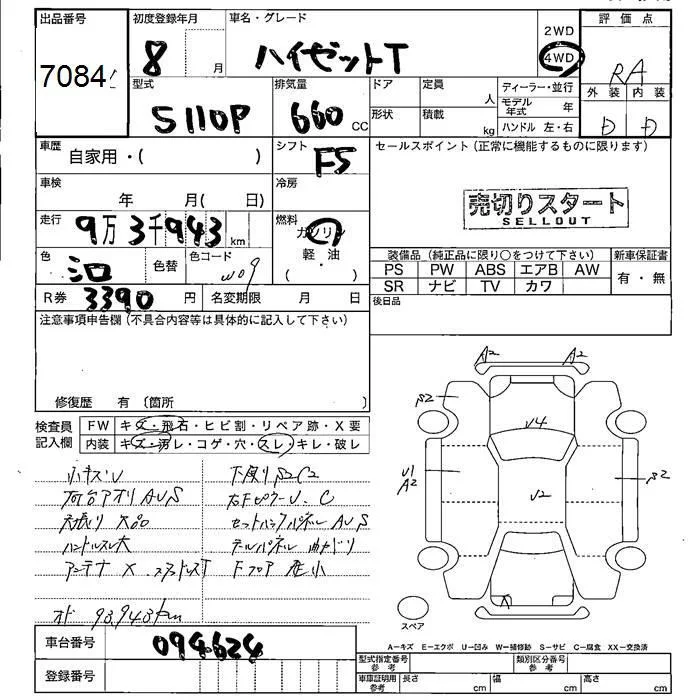 出品番号 初度登録年月 車名・グレード 2WD 評価点
7084 8 月 ハイゼットT 4WD RA
型式 排気量 ドア 定員 人 ディーラー・並行 外装 内装
S110P 660 CC 形状 積載 kg モデル年式 年 D D
ハンドル 左・右
車歴 自家用・( ) シフト F5 セールスポイント(正常に機能するものに限ります)
車検 年 月( 日) 冷房
売切りスタート
SELLOUT
走行 9万3千943 km 燃料 ガソリン
軽・油
( )
色 色替 色コード W09
装備品(純正品に限り○をつけて下さい) 新車保証書
PS PW ABS エアB AW 有・無
SR ナビ TV カワ
R券 3390 円 名変期限 月 日 後日品
注意事項申告欄(不具合内容等は具体的に記入して下さい)
修復歴 有〔箇所 〕
検査員 FW キズ・飛石・ヒビ割・リペア跡・X要
記入欄 内装 キズ・汚レ・コゲ・穴・スレ・キレ・破レ
A2 A2
S2
U4
U1
A2
U2
S2
X
小キズU 下廻りS2C2
荷台アオリAUS 右Fピラー U、C
内張り欠品 セットバックパネルAUS
ハンドルスレ大 テールパネル曲がり
アンテナX Fフロア
オド 93,943km
スペア
車台番号 094624
A−キズ E−エクボ U−凹み W−補修跡 S−サビ C−腐食 XX−交換済
登録番号
型式指定番号 参考 類別区分番号 参考
車庫証明用 参考 長さ cm 幅 cm 高さ cm